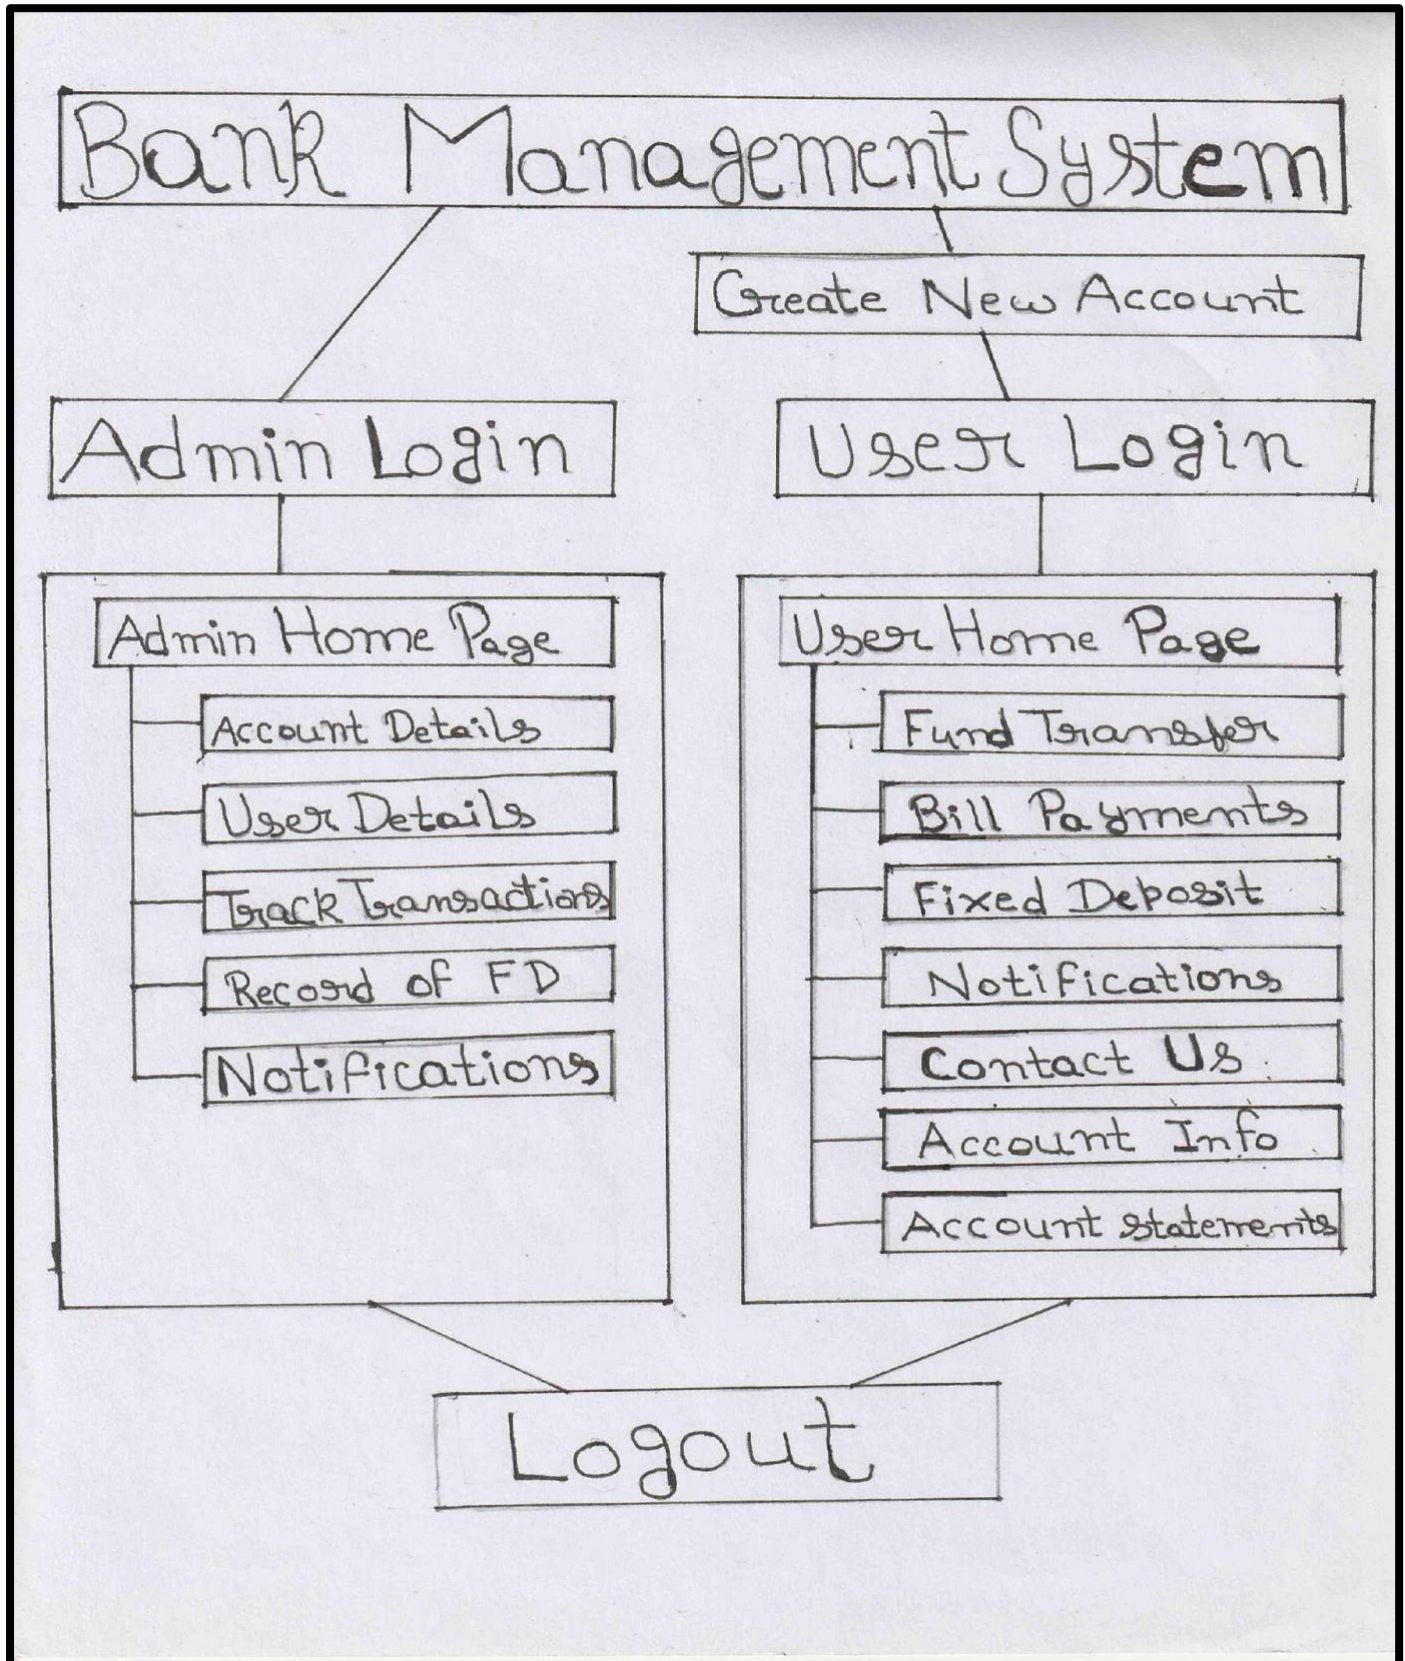 Bank Management System
Create New Account
Admin Login
User Login
Admin Home Page
Account Details
User Details
Track Transactions
Record of FD
Notifications
User Home Page
Fund Transfer
Bill Payments
Fixed Deposit
Notifications
Contact Us
Account Info
Account Statements
Logout